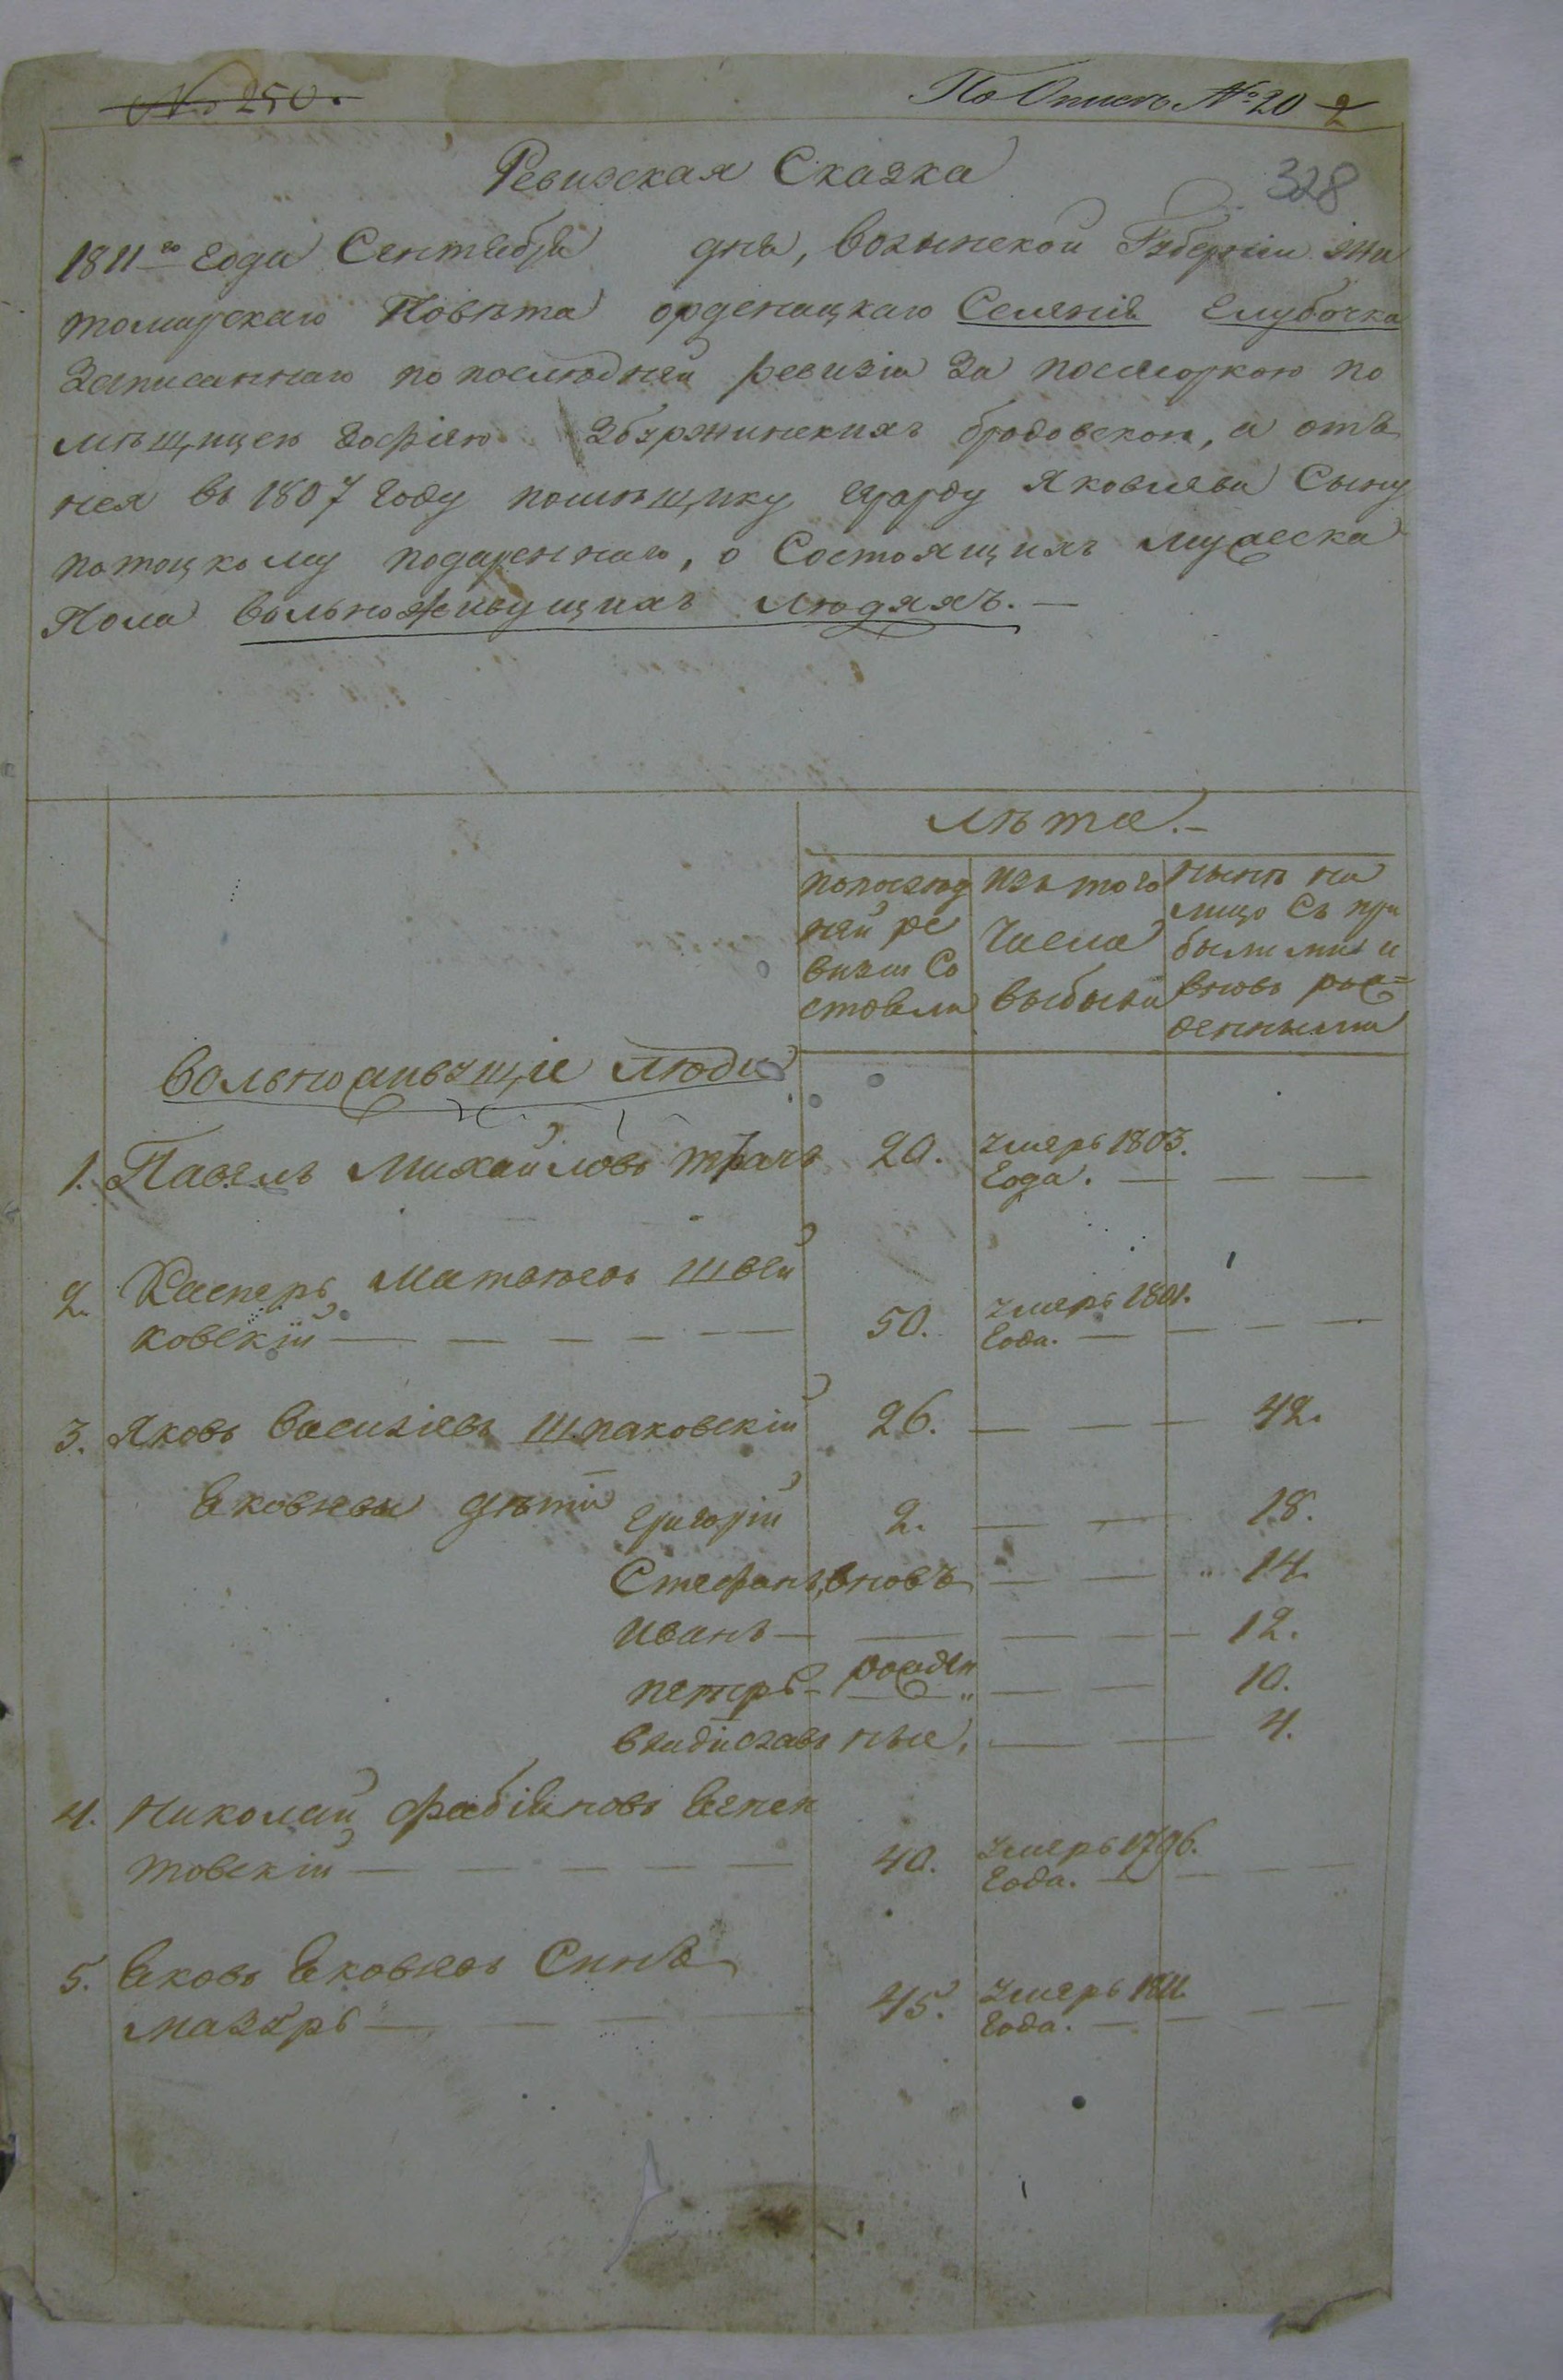 № 250.
По Описи № 20 2
328
Ревизская Сказка
1811го Года Сентября дня, волынской Губерніи жи
томирскаго Повѣта орденацкаго Селенія Глубочка
Записаннаго по последней ревизіи За посессоркою по
мѣщицею Зофіею Збуржинскихъ бродовскою, а отъ
нея въ 1807 году помѣщику Яковлеву Сыну
потоцкому подареннаго, о Состоящихъ мужеска
Пола вольноживущихъ людяхъ.
лѣта.
попослед
ней ре
визіи Со
стояли
изъ того
Числа
выбыли
нынѣ на
лицо Съ при
былыми и
вновь рож=
денными
вольноживущіе люди
1. Павелъ Михайловъ ткачъ 20. умеръ 1803.
Года.
2. Касперъ Матвѣевъ Швей
ковскій 50. умеръ 1801.
Года.
3. Яковъ василіевъ Шпаковскій 26. 42.
Яковлевы дѣти Григорій 2. 18.
Стефанъ, вновь 14.
иванъ 12.
петръ рожден 10.
владиславъ ные, 4.
4. Николай Фабіяновъ
товскій 40. умеръ 1796.
Года.
5. Яковъ Яковлевъ Синъ
мазуръ 45. умеръ 1811.
Года.